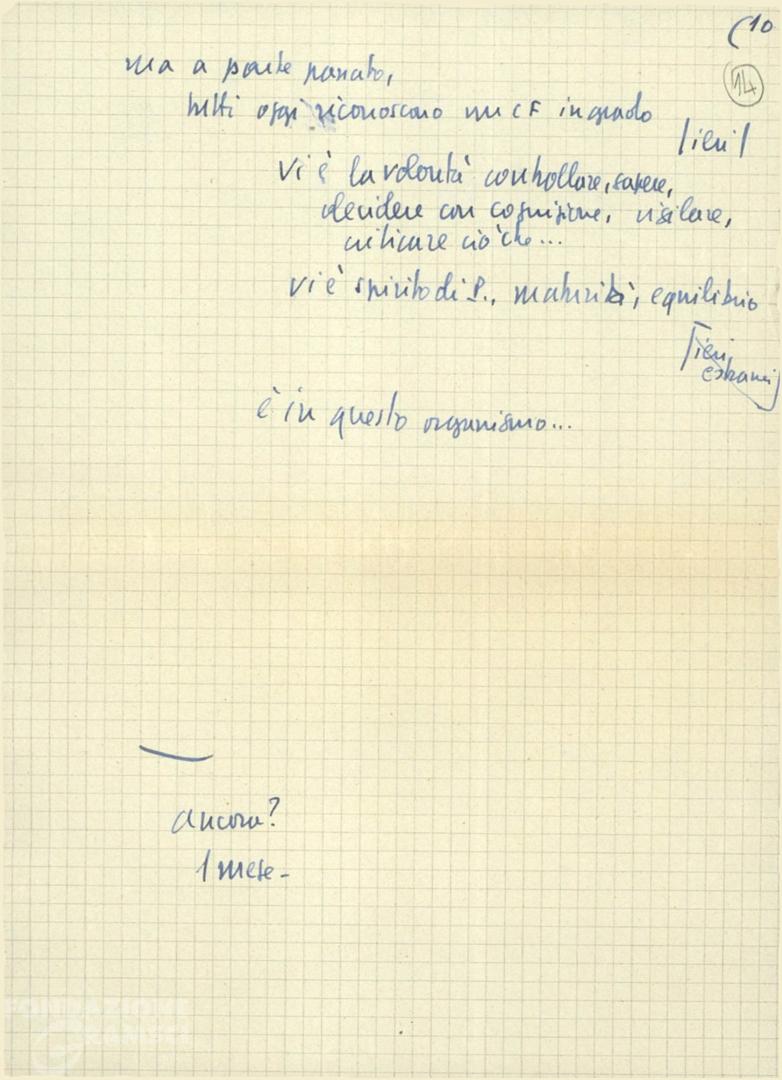 (10
14
ma a parte passato,
tutti oggi riconoscono un CF in grado
|ieri|
vi è la volontà controllare, sapere,
decidere con cognizione, vigilare,
criticare ciò che...
vi è spirito di P., maturità, equilibrio
ieri,
è in questo organismo...
ancora?
1 mese -
FONDAZIONE